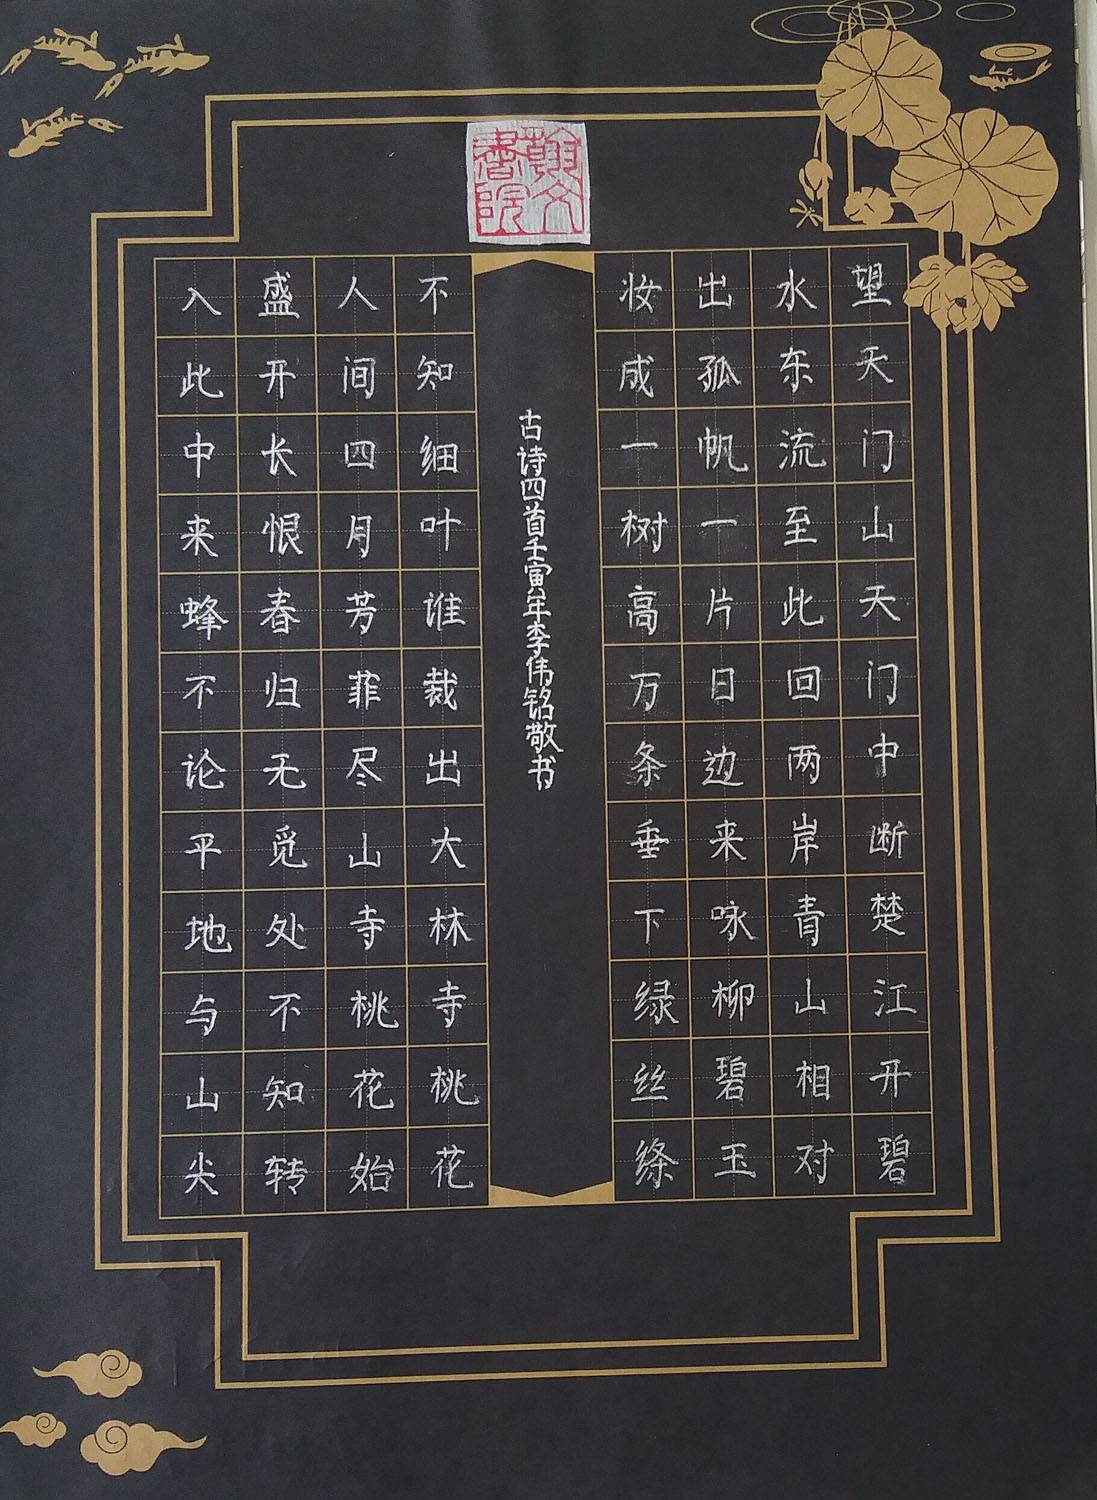 翰文
書院
望天门山天门中断楚江开碧
水东流至此回两岸青山相对
出孤帆一片日边来咏柳碧玉
妆成一树高万条垂下绿丝绦
古诗四首壬寅年李伟铭敬书
不知细叶谁裁出大林寺桃花
人间四月芳菲尽山寺桃花始
盛开长恨春归无觅处不知转
入此中来蜂不论平地与山尖